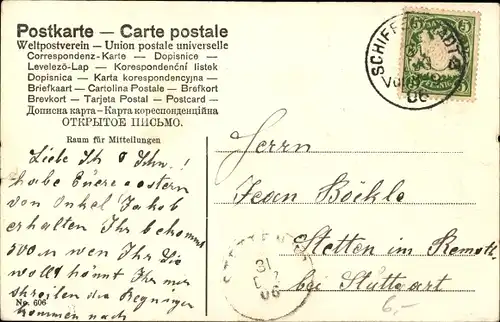 Postkarte — Carte postale
Weltpostverein — Union postale universelle
Correspondenz-Karte — Dopisnice
Levelező-Lap — Korespondenční listek
Dopisnica — Karta korespondencyjna
Briefkaart — Cartolina Postale — Brefkort
Brevkort — Tarjeta Postal — Postcard
Дописна карта — Карта кореспонденційна
ОТКРЫТОЕ ПИСЬМО.
Raum für Mitteilungen
Liebe
habe Euere gestern
von Onkel Jakob
erhalten Ihr bekommt
500 m wen Ihr Sie
wollt könnt Ihr mir
schreiben die
kommen nach
No. 606
Herrn
Jean Böckle
Stetten im Remstl.
bei Stuttgart
6,-
SCHIFFERSTADT
Vorm
06
5
5
STETTEN
31
06